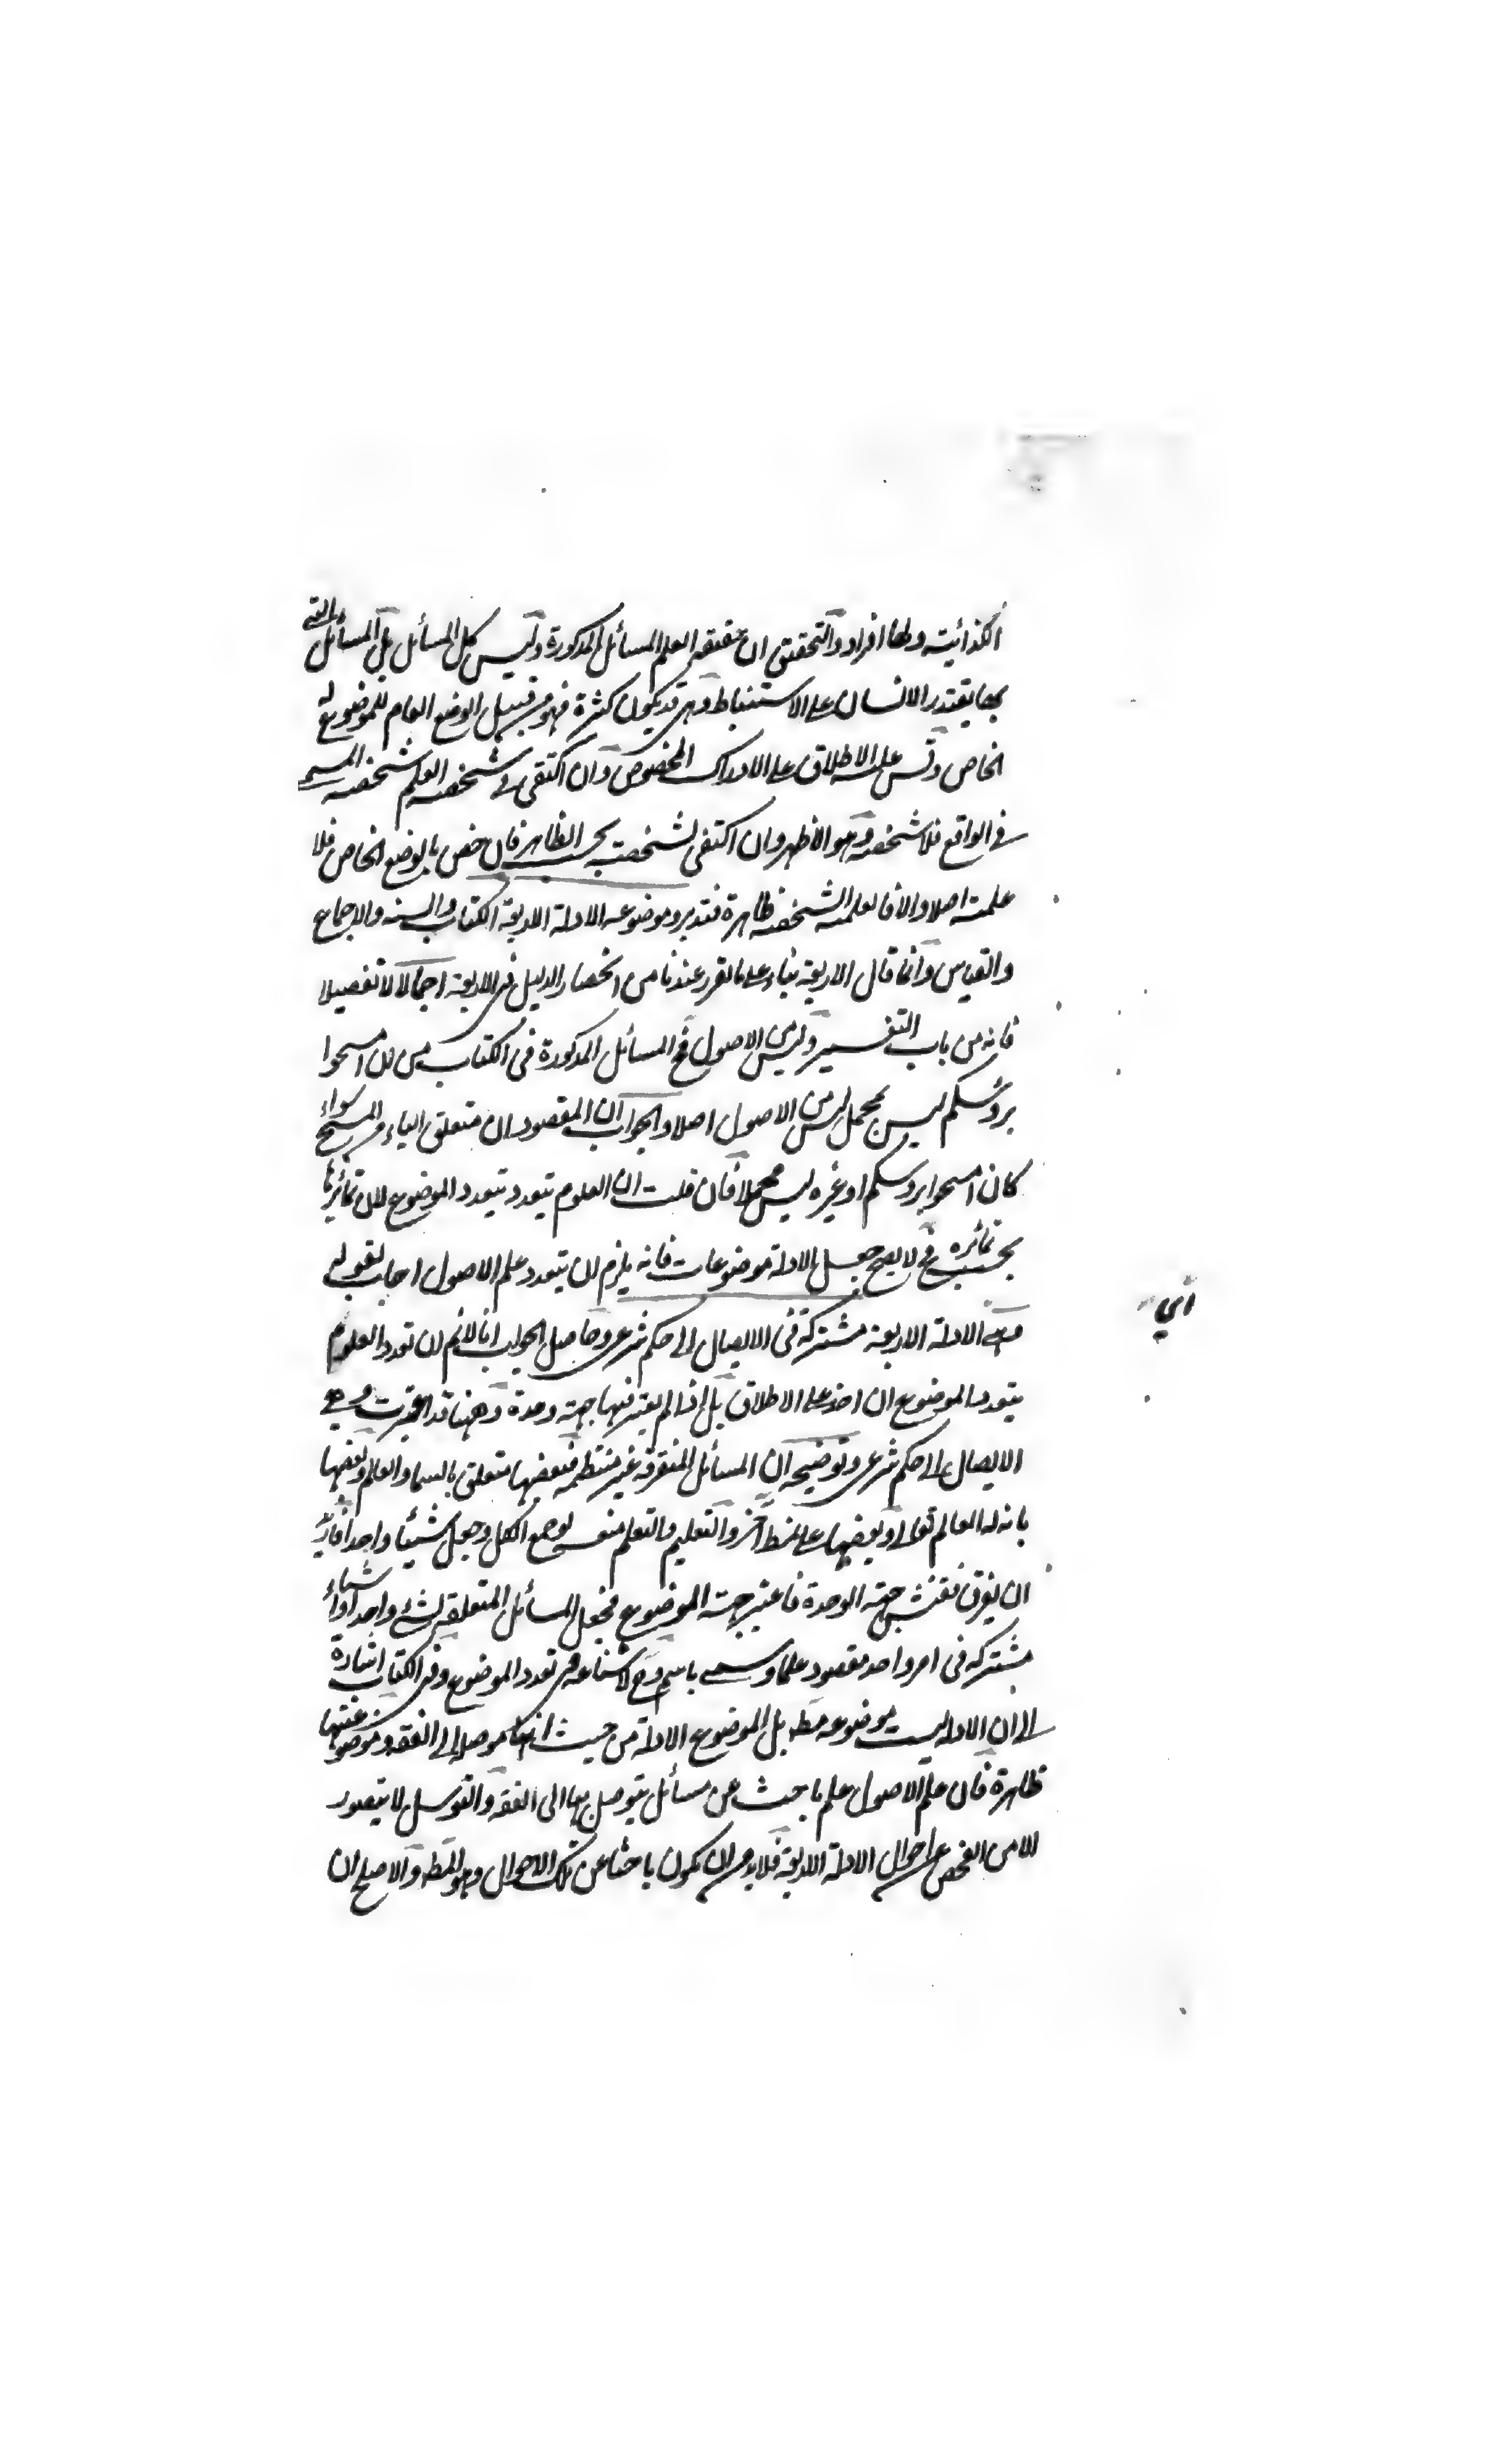 الكذائية ولها افراد والتحقيق ان حقيقة العلم المسائل المذكورة وليس كل المسائل بل المسائل التي
بها يقتدر الانسان على الاستنباط وهي قد يكون كثرة فهو من قبيل الوضع العام للموضوع له
الخاص وقس عليه الاطلاق على الادراك المخصوص وان اكتفى في شخصية العلم شخصية المسمى
في الواقع فلا شخصية وهو الاظهر وان اكتفى لشخصية بحسب الظاهر فان خص بالوضع الخاص فلا
علمية اصلا والا فالعلمية الشخصية ظاهرة فتدبر وموضوعه الادلة الاربعة الكتاب والسنة والاجماع
والقياس وانما قال الاربعة بناء على ما تقرر عندنا من انحصار الدليل في الاربعة اجمالا لا تفصيلا
فانه من باب التفسير وليس من الاصول فح المسائل المذكورة في الكتاب من ان امسحوا
برؤسكم ليس بمجمل ليس من الاصول اصلا والجواب ان المقصود ان متعلق الباء من المسح سواء
كان امسحوا برؤسكم او غيره ليس مجملا فان قلت ان العلوم يتعدد بتعدد الموضوع لان تمايزها
بحسب تمائزه فح لا يصح جعل الادلة موضوعات فانه يلزم ان يتعدد علم الاصول اجاب بقوله
وهي الادلة الاربعة مشتركة في الايصال الى حكم شرعي وحاصل الجواب انا لانم ان تعدد العلوم
بتعدد الموضوع ان اخذ على الاطلاق بل اذا لم يعتبر فيها جهة وحدة وههنا قد اعتبرت وهي
الايصال الى حكم شرعي وتوضيحه ان المسائل المتفرقة غير منتظمة فبعضها متعلق بالسماء والعالم وبعضها
باله العالم تعالى وبعضها على نمط آخر والتعليم والتعلم لوجمع الكل وجعل شيئا واحدا
ان يفرق ففتش جهة الوحدة فاعتبر جهة الموضوع فجعل المسائل المتعلقة لشيء واحد او اشياء
مشتركة في امر واحد مقصود علما وسمي باسم وح لا شناعة في تعدد الموضوع وفي الكتاب اشارة
الى ان الادلة ليست موضوعه مطه بل الموضوع الادلة من حيث انها موصلة الى الفقه وموضوعيتها
ظاهرة فان علم الاصول علم باحث عن مسائل يتوصل بها الى الفقه والتوسل لا يتصور
الا من الفحص عن احوال الادلة الاربعة فلا بد من ان يكون باحثا عن تلك الاحوال وهو المط والاصلح ان